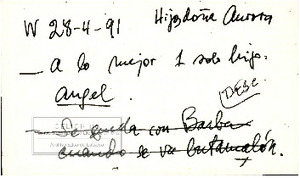 W 28-4-91 Hija doña Aurora
— A lo mejor 1 solo hijo.
Angel.
DESC
— Se queda con Barba
cuando se va